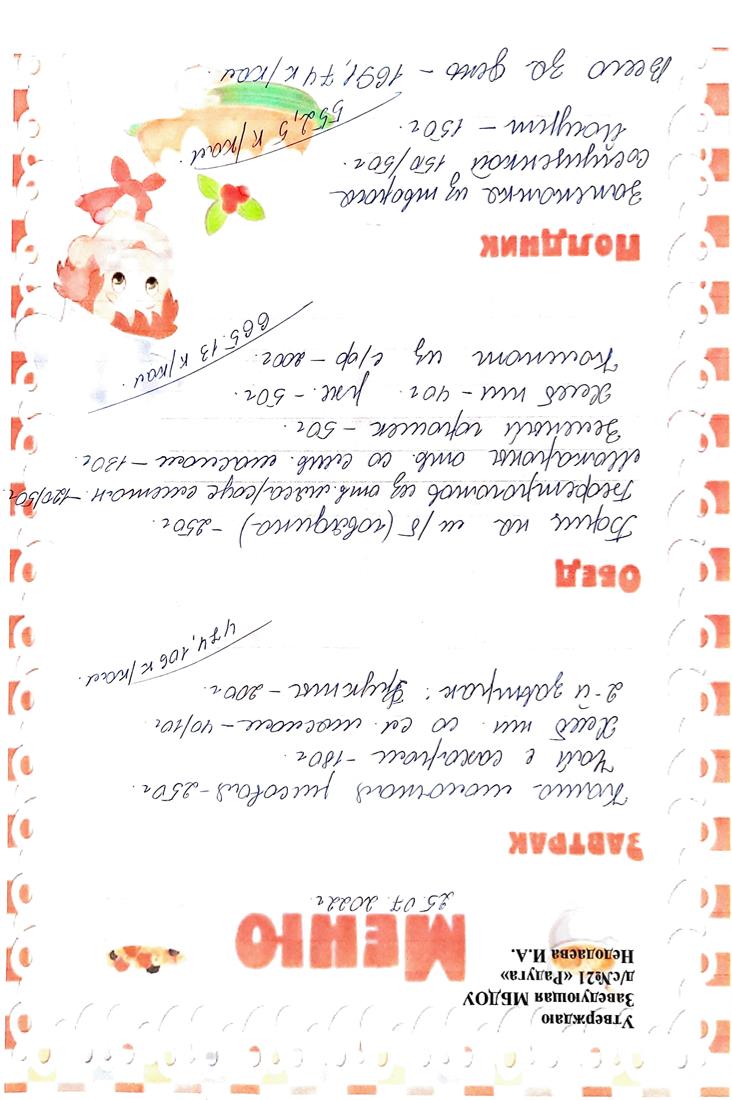 Утверждаю
Заведующая МБДОУ
д/с№21 «Радуга»
Недодаева И.А.
МЕНЮ
25.07.2022г
ЗАВТРАК
Каша молочная рисовая-250г
Чай с сахаром -180г
Хлеб пш. со сл. маслом-40/10г
2-й завтрак: Фрукты-200г.
474,106 к/кал.
ОБЕД
Борщ на м/б (говядина) -250г.
Бефстроганов из отв. мяса/соус сметан -120/50г
Макароны отв. со слив. маслом-130г
Зеленый горошек-50г.
Хлеб пш-40г. рж.-50г.
Компот из с/фр-200г.
665.13 к/кал.
ПОЛДНИК
Запеканка из творога
сгущенкой 150/50г.
Йогурт-150г.
552,5 к/кал.
Всего за день-1691,74 к/кал